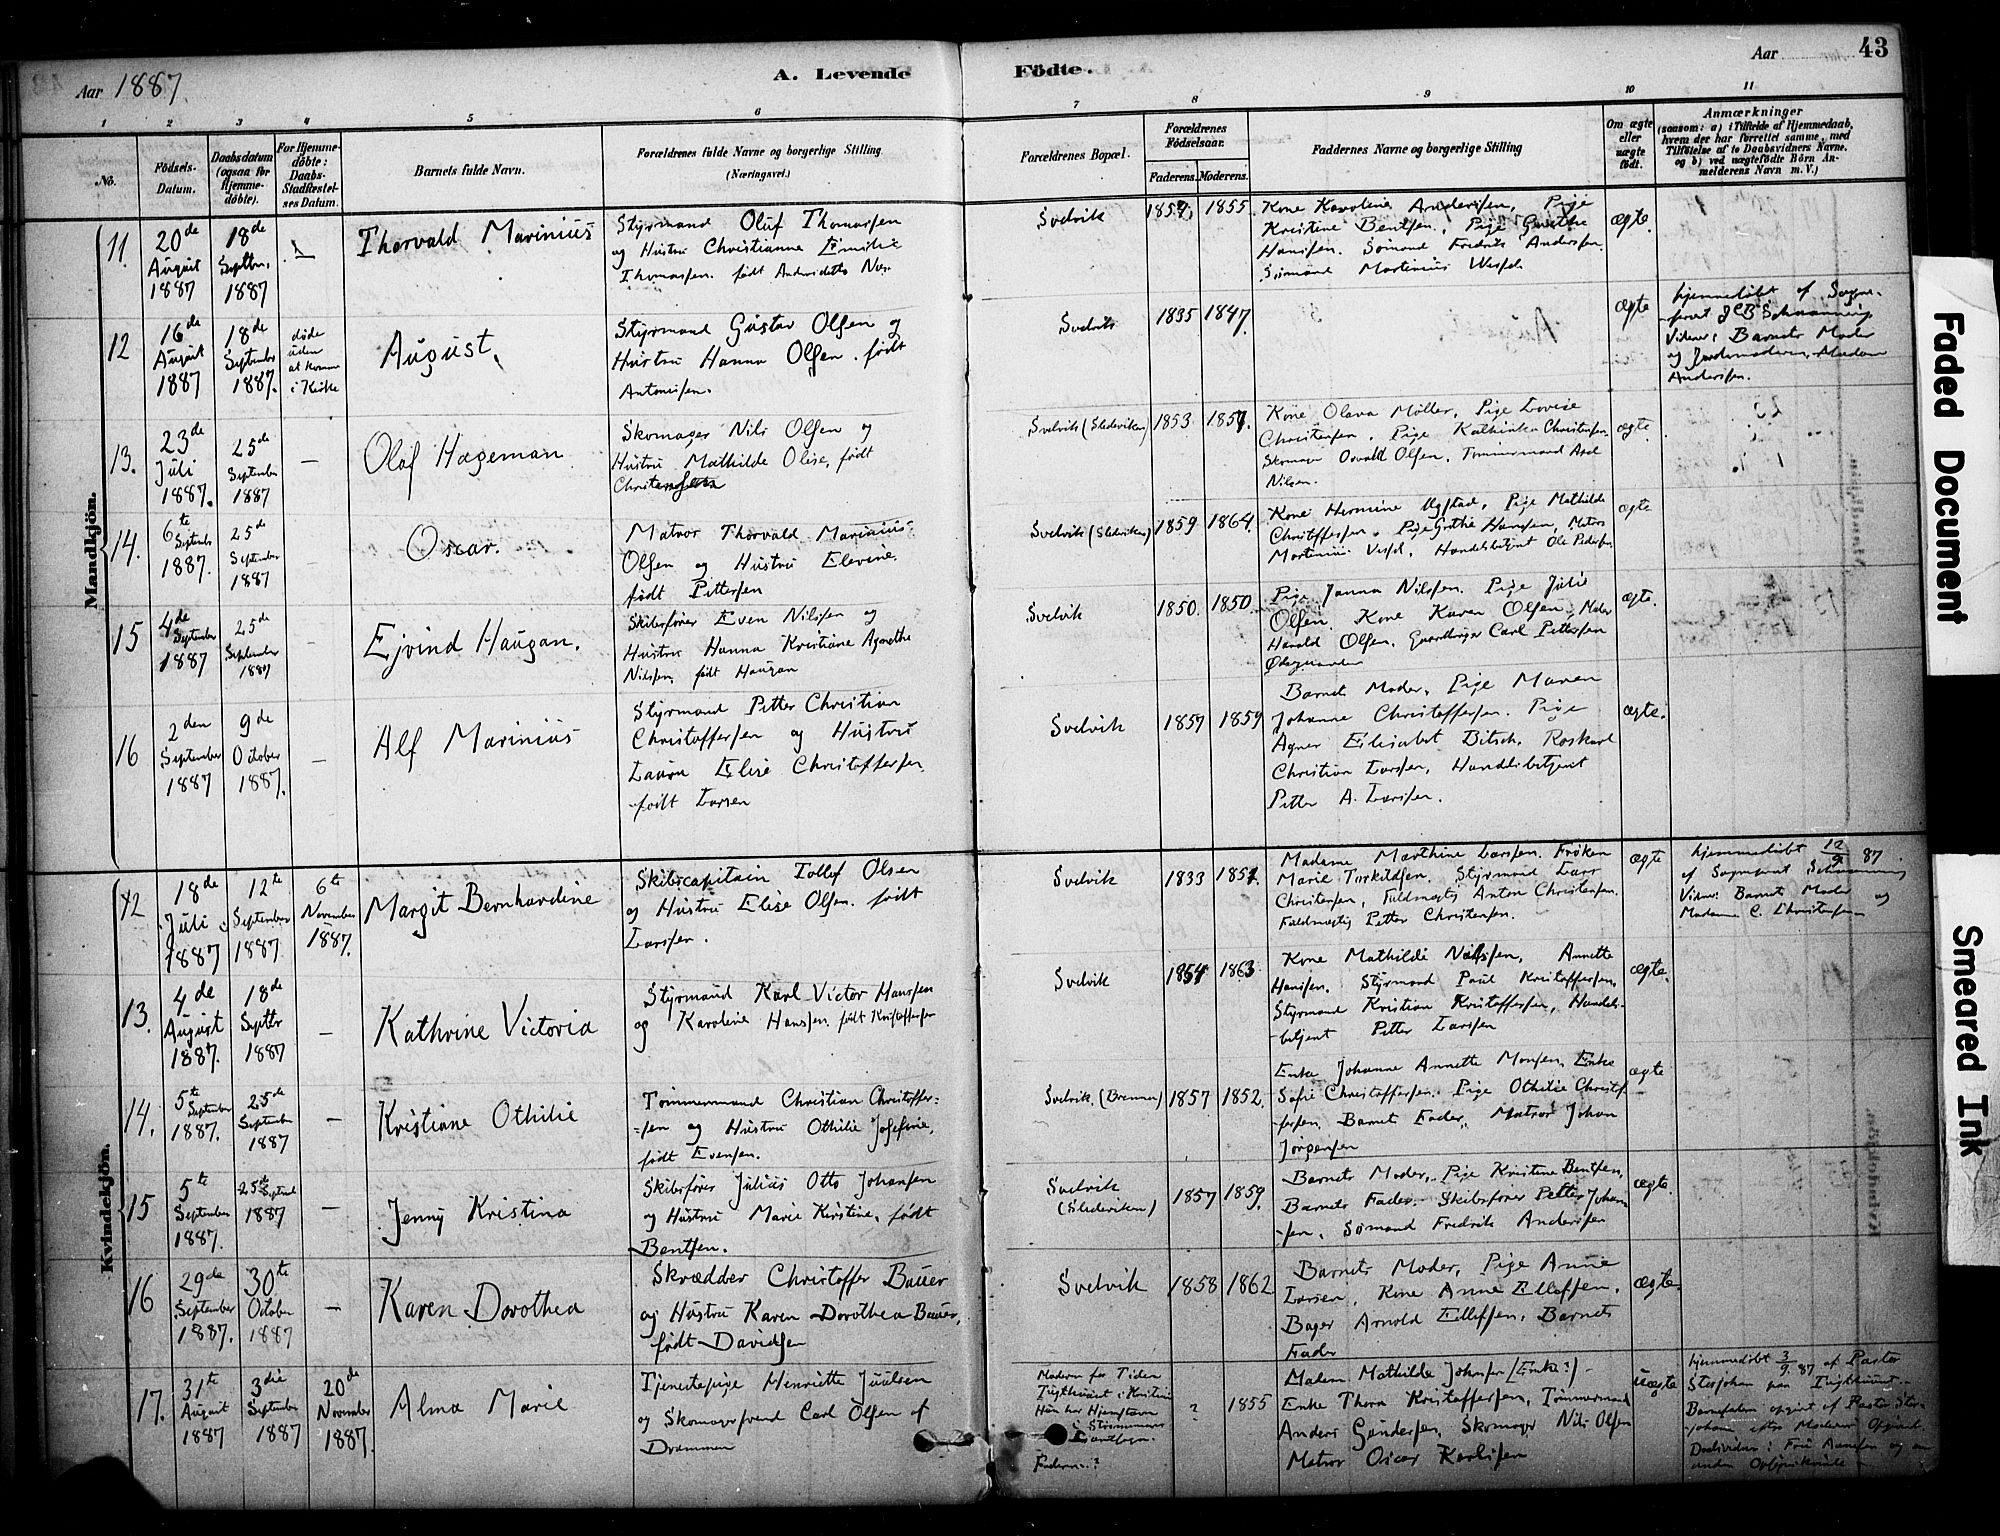 Aar 1887
A. Levende
Födte.
Aar
43
1 2 3 4 5 6 7 8 9 10 11
No.
Födsels-Datum.
Daabsdatum (ogsaa for Hjemmedöbte).
For Hjemmedöbte: Daabs-Stadfæstelses Datum.
Barnets fulde Navn.
Forældrenes fulde Navne og borgerlige Stilling
(Næringsvei.)
Forældrenes Bopæl.
Forældrenes Födselsaar.
Faderens. Moderens.
Faddernes Navne og borgerlige Stilling
Om ægte eller uægte födt.
Anmærkninger
(saasom: a) i Tilfælde af Hjemmedaab, hvem der har forrettet samme, med Tilföielse af to Daabsvidners Navne, og b) ved uægtefödte Börn Anmelderens Navn m. V.)
Mandkjön.
11. 20de August 1887
18de Septbr. 1887
Thorvald Marinius
Styrmand Oluf Thomassen
og Hustru Christianne Emilie
Thomassen. født
Svelvik
1855
Kone Karoline Andersen, Pige
Kristine Bentsen, Pige Grethe
Hansen. Sömand Fredrik Andersen.
Sömand Martinius
ægte.
12 16de August 1887
18de September 1887.
døde uden at komme i Kirke
August,
Styrmand Gustav Olsen og
Hustru Hanna Olsen. født
Antonisen.
Svelvik
1835 1847.
ægte
hjemmedøbt af Sogne-
Vidner: Barnets Moder
og Jordemoderen, Madam
Andersen.
13. 23de Juli 1887.
25de September 1887
Olaf Hageman
Skomager Nils Olsen og
Hustru Mathilde Olise, født
Christensen
Svelvik (Slederiken)
1853
Kone Olava Möller, Pige Lovise
Christensen, Pige Kathinka Christensen
Skomager Osvald Olsen, Tømmermand Axel
Nilsen.
ægte
14. 6te Septembr 1887.
25de September 1887
Oscar.
Matros Thorvald Marinius
Olsen og Hustru Elevine
født Pettersen
Svelvik (Slederiken)
1859 1864.
Kone Hermine Pige Mathilde
Christoffersen, Pige Grethe Hansen, Matros
Martinius Handelsbetjent Ole Pedersen
ægte
15 4de September 1887
25de September 1887
Ejvind Haugan.
Skibsfører Even Nilssen og
Hustru Hanna Kristiane Agnethe
Nilssen, født Haugan
Svelvik
1850. 1850.
Pige Janna Nilssen. Pige Julie
Olsen. Kone Karen Olsen. Matros
Harald Olsen, Gaardbruger Carl Pettersen
Ødegaarden
ægte.
16 2den September 1887
9de October 1887.
Alf Marinius
Styrmand Petter Christian
Christoffersen og Hustru
Laura Elise Christoffersen
født Larsen
Svelvik
1857 1859
Barnets Moder, Pige Maren
Johanne Christoffersen. Pige
Agnes Elisabet Bitsch, Roskarl
Christian Larsen, Handelsbetjent
Petter A. Larsen.
ægte.
Kvindekjön.
12 18de Juli 1887
12te September 1887
6te November 1887.
Margit Bernhardine
Skibscapitain Tollef Olsen
og Hustru Elise Olsen. født
Larsen.
Svelvik
1833
Madame Marthine Larsen. Frøken
Marie Torkildsen. Styrmand Lars
Christensen, Fuldmægtig Anton Christensen.
Fuldmægtig Petter Christensen.
ægte
hjemmedøbt 12/9 87.
af Sogneprest
Vidner: Barnets Moder og
Madame C. Christensen
13. 4de August 1887.
18de Septbr 1887
Kathrine Victoria
Styrmand Karl Victor Hanssen
og Karoline Hanssen født Kristoffersen
Svelvik
1854 1863
Kone Mathilde Nilssen, Annette
Hansen. Styrmand Paul Kristoffersen,
Styrmand Kristian Kristoffersen, Handels-
betjent Petter Larssen
ægte
14. 5te September 1887.
25de September 1887
Kristiane Othilie
Tømmermand Christian Christoffer-
-sen og Hustru Othilie Josefine,
født Evensen.
Svelvik. (Brennen)
1857 1852.
Enke Johanne Annette Monsen, Enke
Sofie Christoffersen. Pige Othilie Christof-
fersen, Barnets Fader, Matros Johan
Jörgensen
ægte
15 5te September 1887.
25te Septembr 1887
Jenny Kristina
Skibsfører Julius Otto Johansen
og Hustru Marie Kirstine, født
Bentsen.
Svelvik
(Slederiken)
1857 1859.
Barnets Moder, Pige Kristine Bentsen,
Barnets Fader. Skibsfører Petter Johan-
-sen, Sömand Fredrik Andersen
ægte.
16 29de September 1887.
30te October 1887
Karen Dorothea
Skrædder Christoffer Bauer
og Hustru Karen Dorothea Bauer,
født Davidsen
Svelvik
1858 1862
Barnets Moder, Pige Anne
Larsen, Kone Anne Ellefsen,
Bager Arnold Ellefsen, Barnets
Fader
ægte
17. 31te August 1887
3die September 1887
20de November 1887.
Alma Marie
Tjenestepige Henriette Juulsen
og Skomagersvend Carl Olsen af
Drammen
Moderen for Tiden
Tugthuset i Kristia
Hun har Hjemstavn
i Strømmens
Faderen-?
? 1855
Madam Mathilde Johnsen (Enke?)
Enke Thora Kristoffersen, Tømmermand
Anders Gundersen, Skomager Nils Olsen
Matros Oscar Karlsen
uægte
hjemmedøbt 3/9 87 af Pastor
Storjohan paa Tugthuset.
Barnefaderen opgivet af Pastor Stor-
johan efter Moderens Opgivende.
Faded Document
Smeared Ink